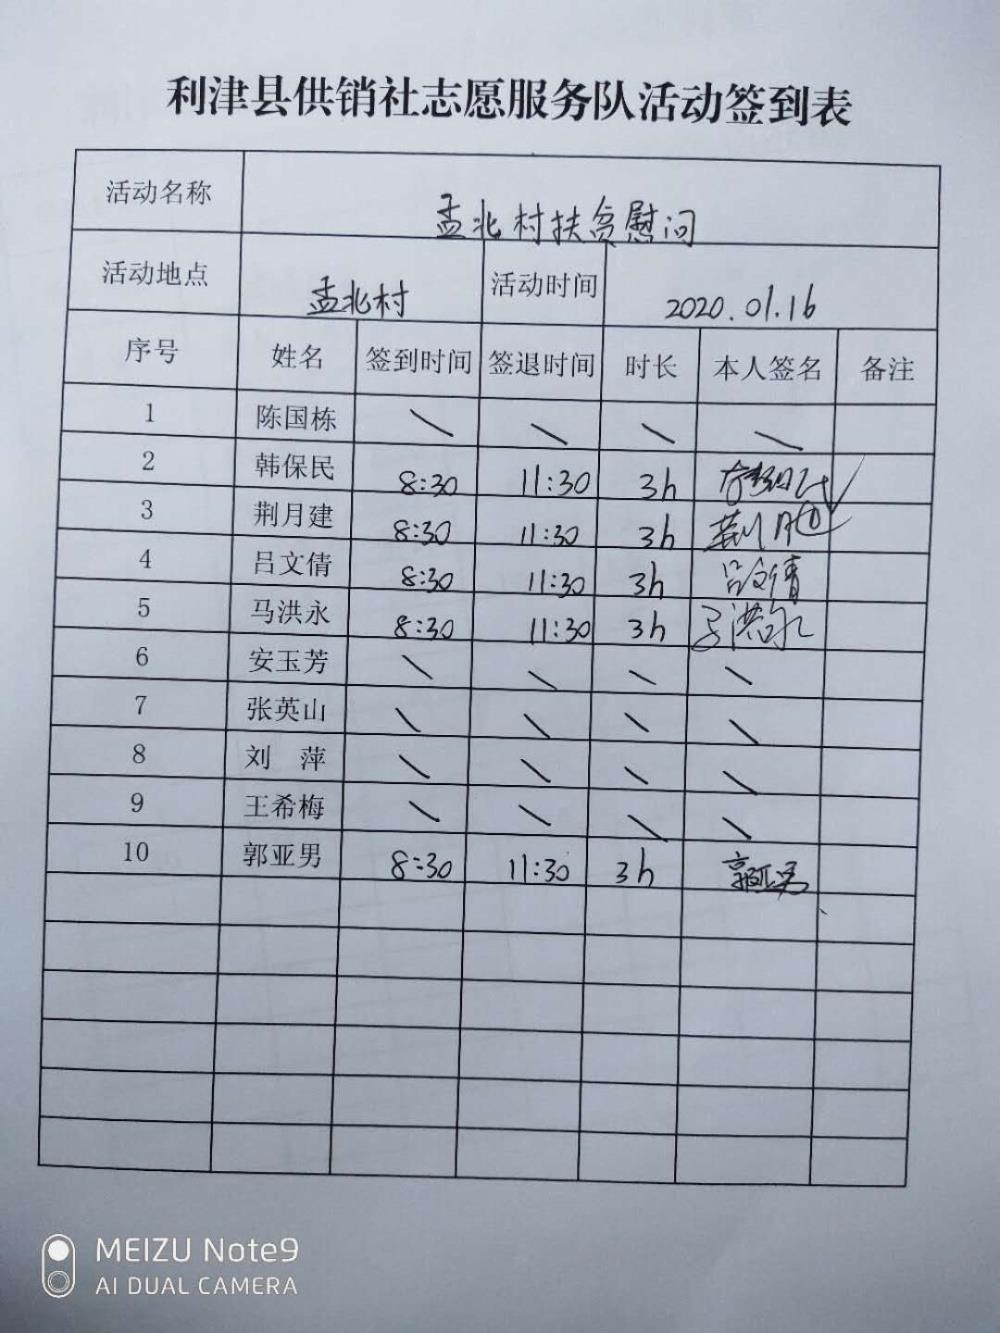 利津县供销社志愿服务队活动签到表
活动名称 孟北村扶贫慰问
活动地点 孟北村 活动时间 2020.01.16
序号 姓名 签到时间 签退时间 时长 本人签名 备注
1 陈国栋 \ \ \ \
2 韩保民 8:30 11:30 3h
3 荆月建 8:30 11:30 3h
4 吕文倩 8:30 11:30 3h 吕文倩
5 马洪永 8:30 11:30 3h 马洪永
6 安玉芳 \ \ \ \
7 张英山 \ \ \ \
8 刘 萍 \ \ \ \
9 王希梅 \ \ \ \
10 郭亚男 8:30 11:30 3h 郭亚男
MEIZU Note9
AI DUAL CAMERA